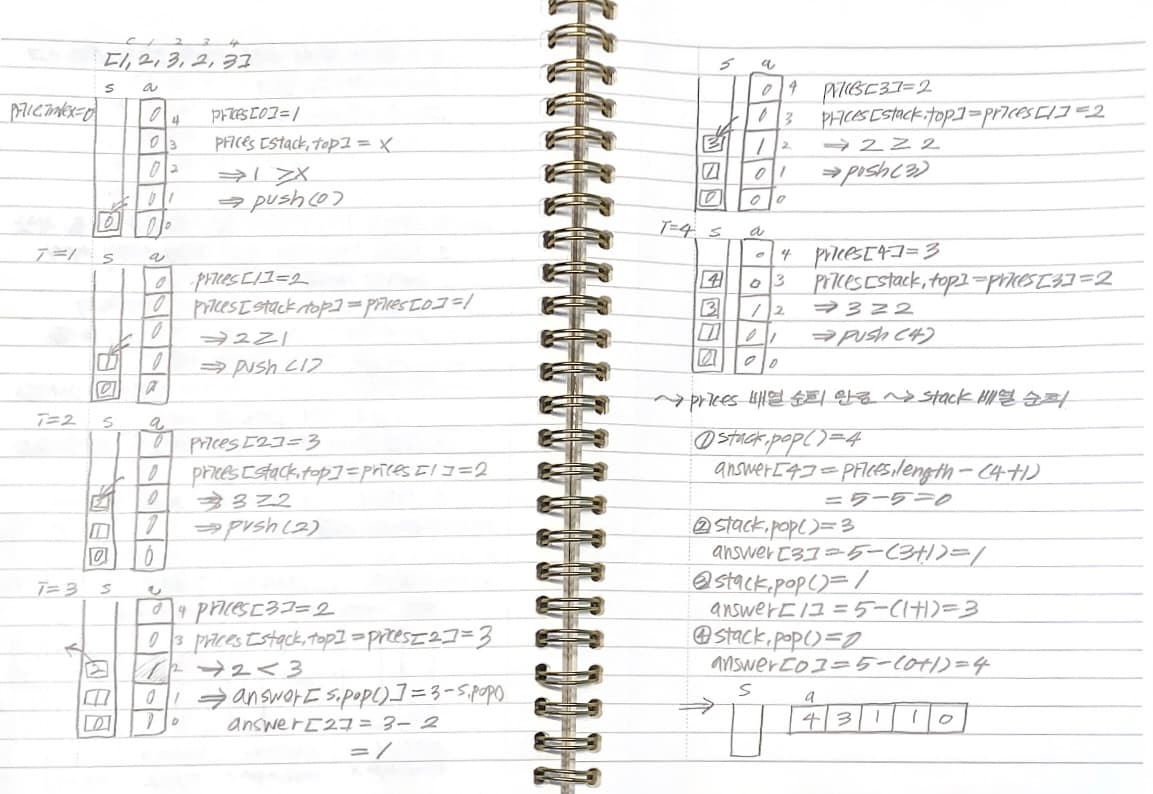 0 1 2 3 4
[1, 2, 3, 2, 3]
s a
price index=0
0 4 prices[0]=1
0 3 prices[stack.top] = x
0 2 ⇒ 1 ≥x
0 1 ⇒ push(0)
0 0 0
T=1 s a
0 prices[1]=2
0 prices[stack.top]=prices[0]=1
0 ⇒ 2≥1
1 0 ⇒ push(1)
0
T=2 s a
0 prices[2]=3
0 prices[stack.top]=prices[1]=2
2 0 ⇒ 3≥2
1 0 ⇒ push(2)
0 0
T=3 s a
0 4 prices[3]=2
0 3 prices[stack.top]=prices[2]=3
2 1 2 → 2 < 3
1 0 1 ⇒ answer[s.pop()]=3-s.pop()
0 0 answer[2]=3-2
=1
s a
0 4 prices[3]=2
0 3 prices[stack.top]=prices[1]=2
3 1 2 ⇒ 2≥2
1 0 1 ⇒ push(3)
0 0 0
T=4 s a
0 4 prices[4]=3
4 0 3 prices[stack.top]=prices[3]=2
3 1 2 ⇒ 3≥2
1 0 1 ⇒ push(4)
0 0 0
~> prices 배열 순회 완료 ~> stack 배열 순회
① stack.pop()=4
answer[4]=prices.length-(4+1)
=5-5=0
② stack.pop()=3
answer[3]=5-(3+1)=1
③ stack.pop()=1
answer[1]=5-(1+1)=3
④ stack.pop()=0
answer[0]=5-(0+1)=4
s a
⇒ 4 3 1 1 0